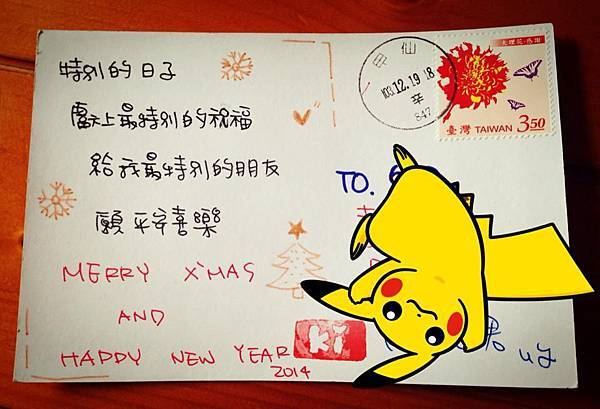 特別的日子
獻上最特別的祝福
給我最特別的朋友
願平安喜樂
MERRY X'MAS
AND
HAPPY NEW YEAR
2014
ki
甲仙
103.12.19.18
辛
847
大理花·感謝
臺灣 TAIWAN 3.50
TO.